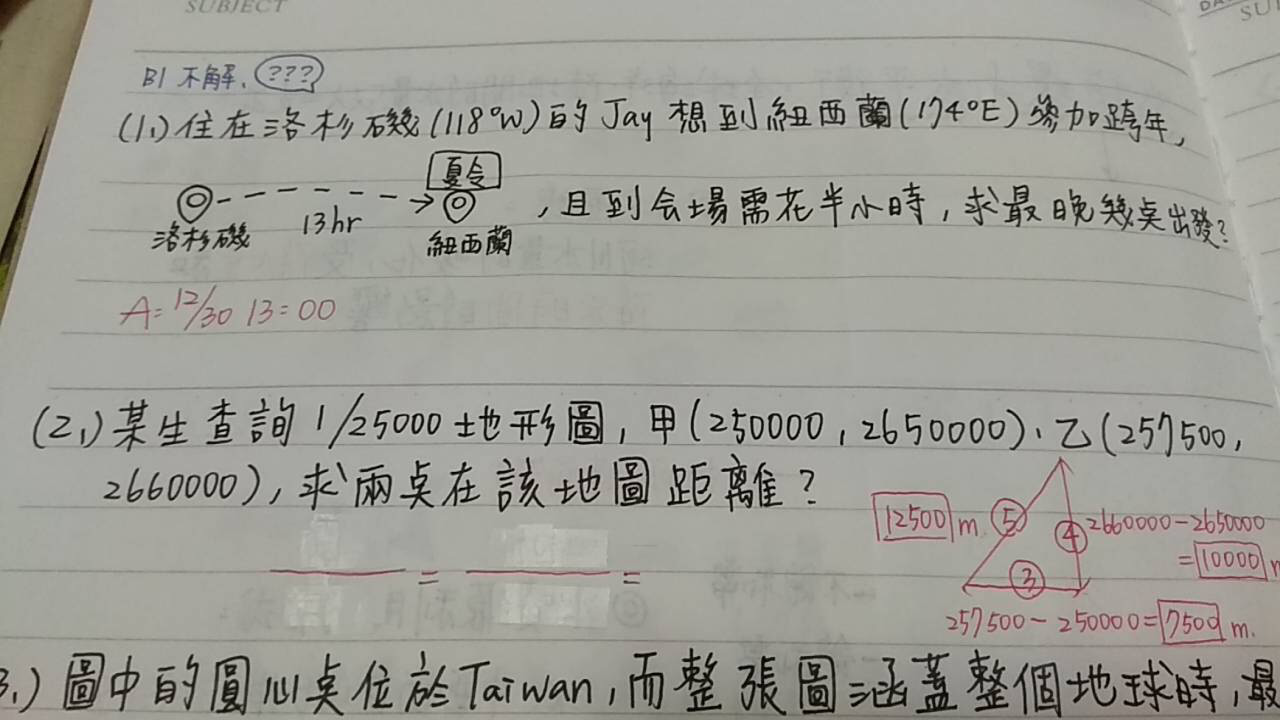 SUBJECT
B1 不解. ???
(1.) 住在洛杉磯(118°W)的Jay想到紐西蘭(174°E)參加跨年,
夏令
洛杉磯 13hr 紐西蘭
,且到会場需花半小時,求最晚幾点出發?
A= 12/30 13=00
(2.) 某生查詢1/25000土地形圖,甲(250000,2650000)、乙(257500,
2660000),求兩点在該地圖距離?
12500 m ⑤ ④ 2660000-2650000
=10000 m
③
= =
257500-250000=7500 m.
3.) 圖中的圓心点位於Taiwan,而整張圖涵蓋整個地球時,最